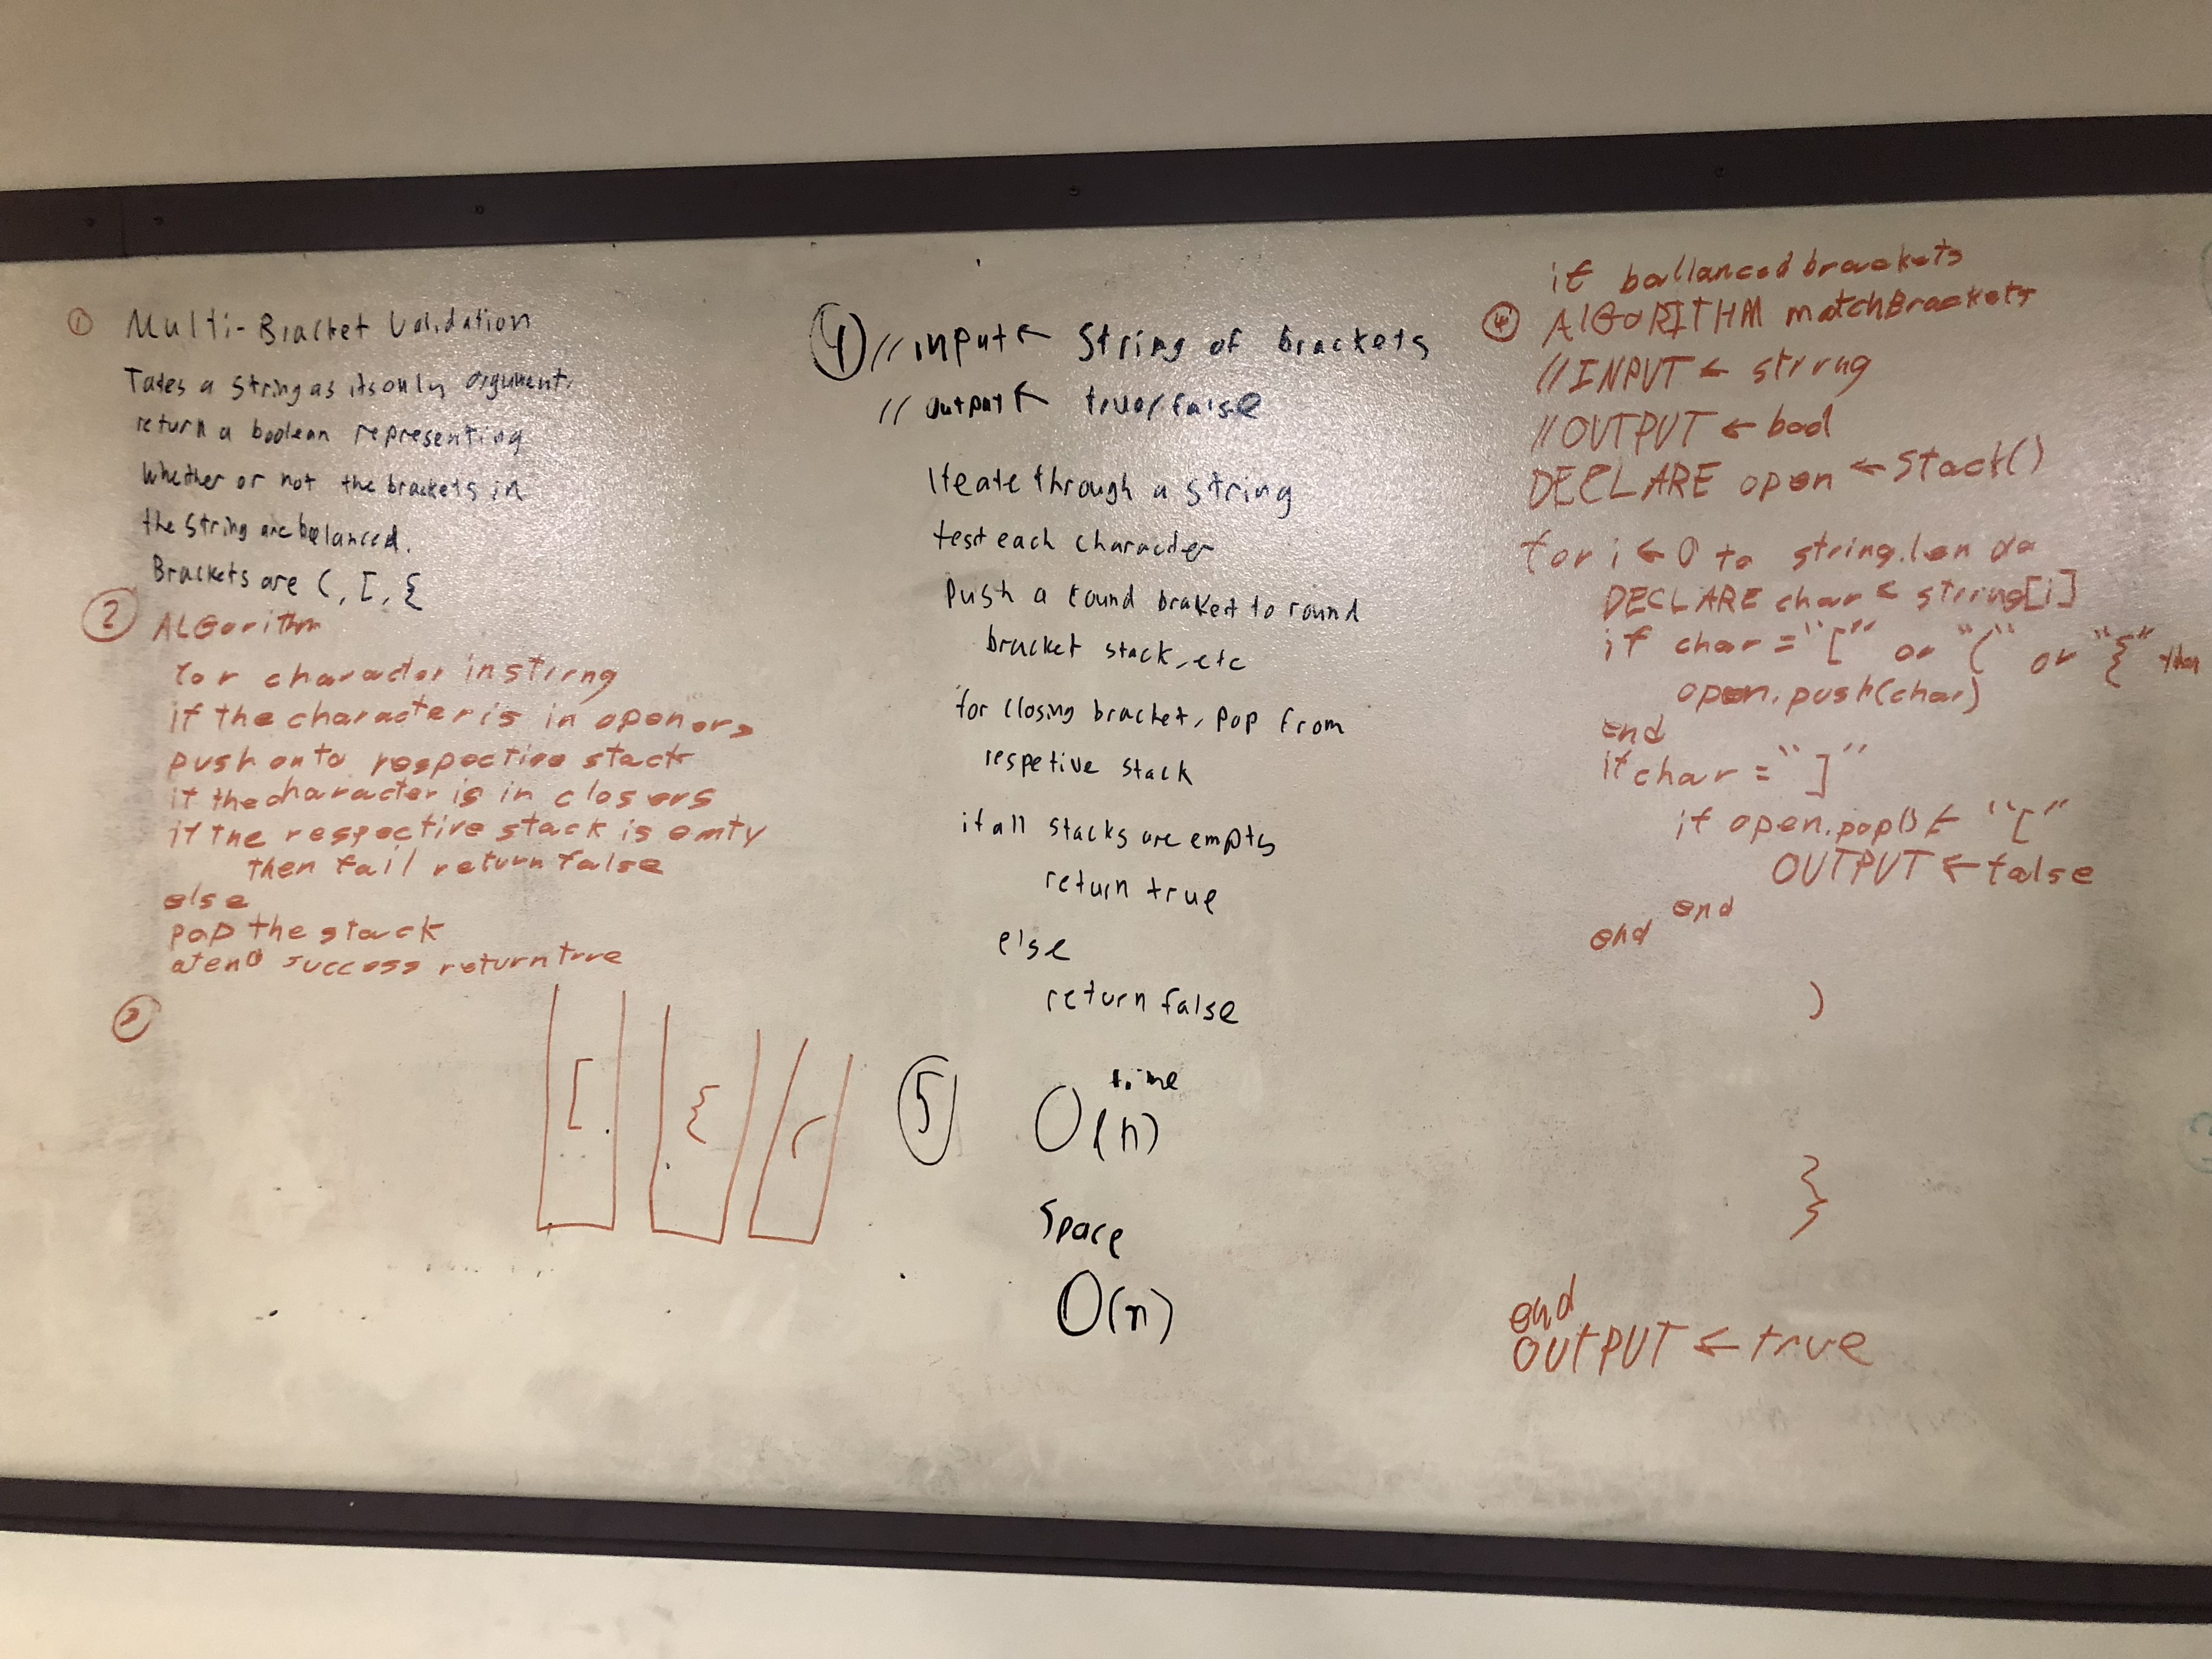 ① Multi-Bracket Validation
Takes a string as its only argument,
return a boolean representing
Whether or not the brackets in
the string are balanced.
Brackets are (, [, {
② ALGorithm
for character in string
if the character is in openers
push onto respective stack
if the character is in closers
if the respective stack is emty
then fail return false
else
pop the stack
at end success return true
③
[ { (
④ // input ← String of brackets
// output ← true/false
Iteate through a string
test each character
Push a round braket to round
bracket stack, etc
for closing bracket, pop from
respetive stack
if all stacks are empty
return true
else
return false
⑤ time
O(n)
Space
O(n)
if ballanced brackets
④ AlGORITHM matchBrackets
//INPUT ← string
//OUTPUT ← bool
DECLARE open ← Stack()
for i ← 0 to string.len do
DECLARE char ← string[i]
if char = "[" or "(" or "{" then
open.push(char)
end
if char = "]"
if open.pop() ≠ "["
OUTPUT ← false
end
end
)
}
end
OUTPUT ← true